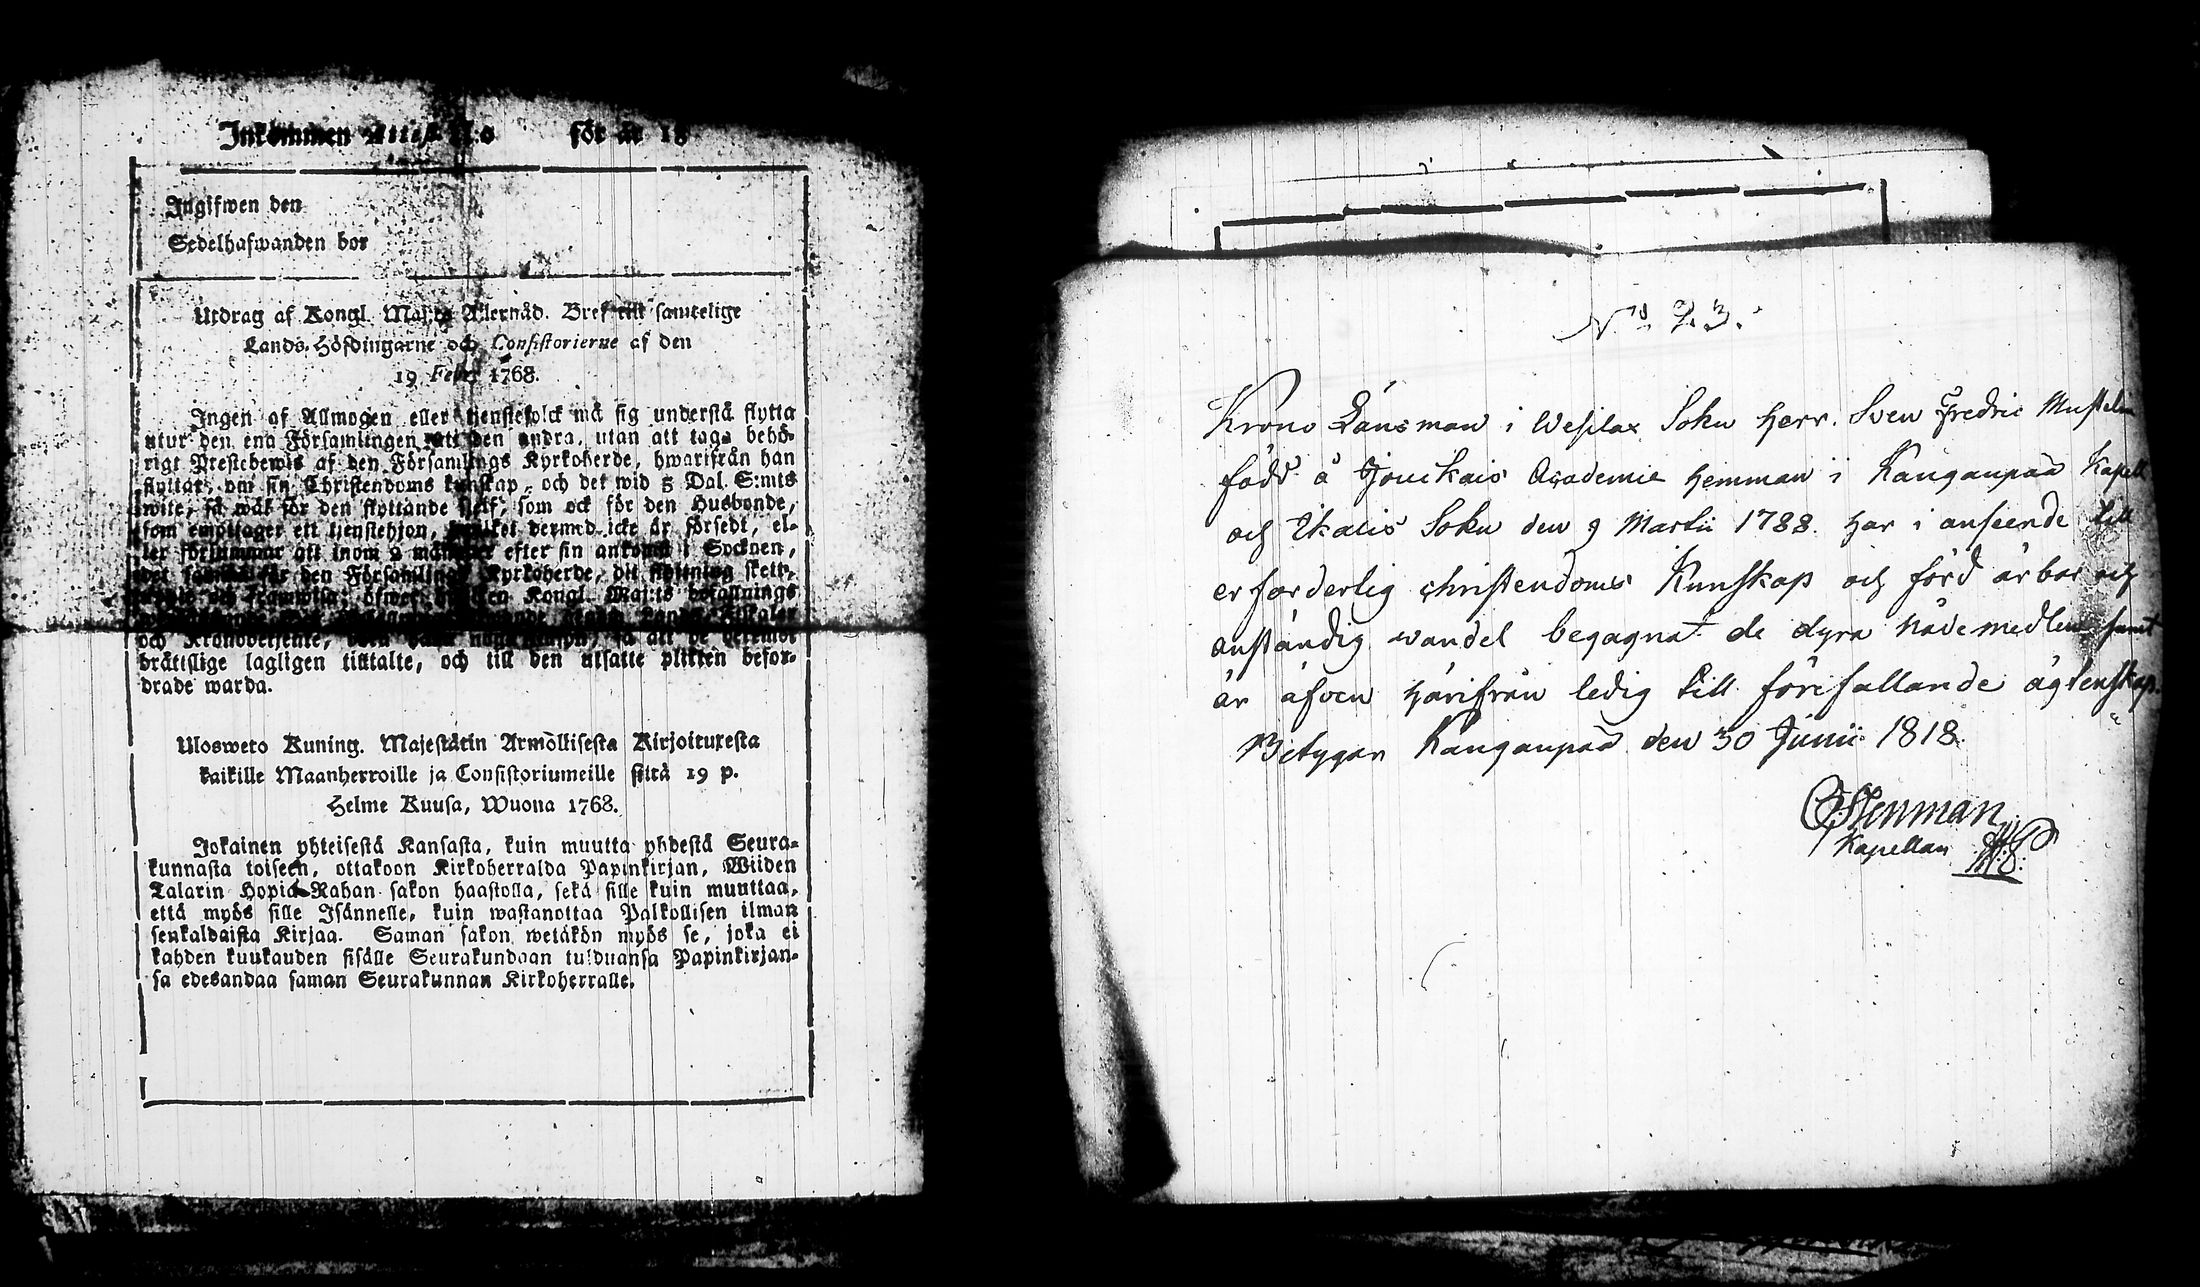 Inkommen Attest N:o för år 18
Ingifwen den
Sedelhafwanden bor
Utdrag af Kongl. Maj:ts Allernåd. Bref till samtelige
Lands-Höfdingarne och Consistorierne af den
19 Febr. 1768.
Ingen af Allmogen eller tjenstefolck må sig understå flytta
utur den ena Församlingen uti den andra, utan att taga behö-
rigt Prestebewis af den Församlings Kyrkoherde, hwarifrån han
flyttar, om sin Christendoms kunskap, och det wid 5 Dal. S:mts
wite, så wäl för den flyttande sjelf, som ock för den Husbonde,
som emottager ett tienstehjon, hwilket dermed icke är försedt, el-
ler försummar att inom 2 månader efter sin ankomst i Socknen,
det för den Församlings Kyrkoherde, dit flyttning skett,
öfwer Kongl. Maj:ts befallnings
och Kronobetjente, så att de deremot
brättslige lagligen tilltalte, och till den utsatte plikten befor-
drade warda.
Ulosweto Kuning. Majestätin Armollisesta Kirjoituxesta
kaikille Maanherroille ja Consistoriumeille siitä 19 p.
Helme Kuusa, Wuona 1768.
Jokainen yhteisestä Kansasta, kuin muutta yhdestä Seura-
kunnasta toiseen, ottakoon Kirkoherralda Papinkirjan, Wiiden
Talarin Hopia-Rahan sakon haastolla, sekä sille kuin muuttaa,
että myös sille Isännelle, kuin wastanottaa Palkollisen ilman
senkaldaista Kirjaa. Saman sakon wetäkön myös se, joka ei
kahden kuukauden sisälle Seurakundaan tulduansa Papinkirjan-
sa edesandaa saman Seurakunnan Kirkoherralle.
N:o 23.
Krono Länsman i Wesilax Sokn Herr. Sven Fredric Mustelin
född å Jouckais Academie Hemman i Kangaupää Kapell
och Ikalis Sokn den 9 Martii 1788. har i anseende till
erforderlig christendoms Kunskap och förd ärbar och
anständig wandel begagnat de dyra Nådemedlen samt
är äfven härifrån ledig till förefallande ägtenskap.
Betygar Kangaupää den 30 Junii 1818.
Stenman
Kapellan